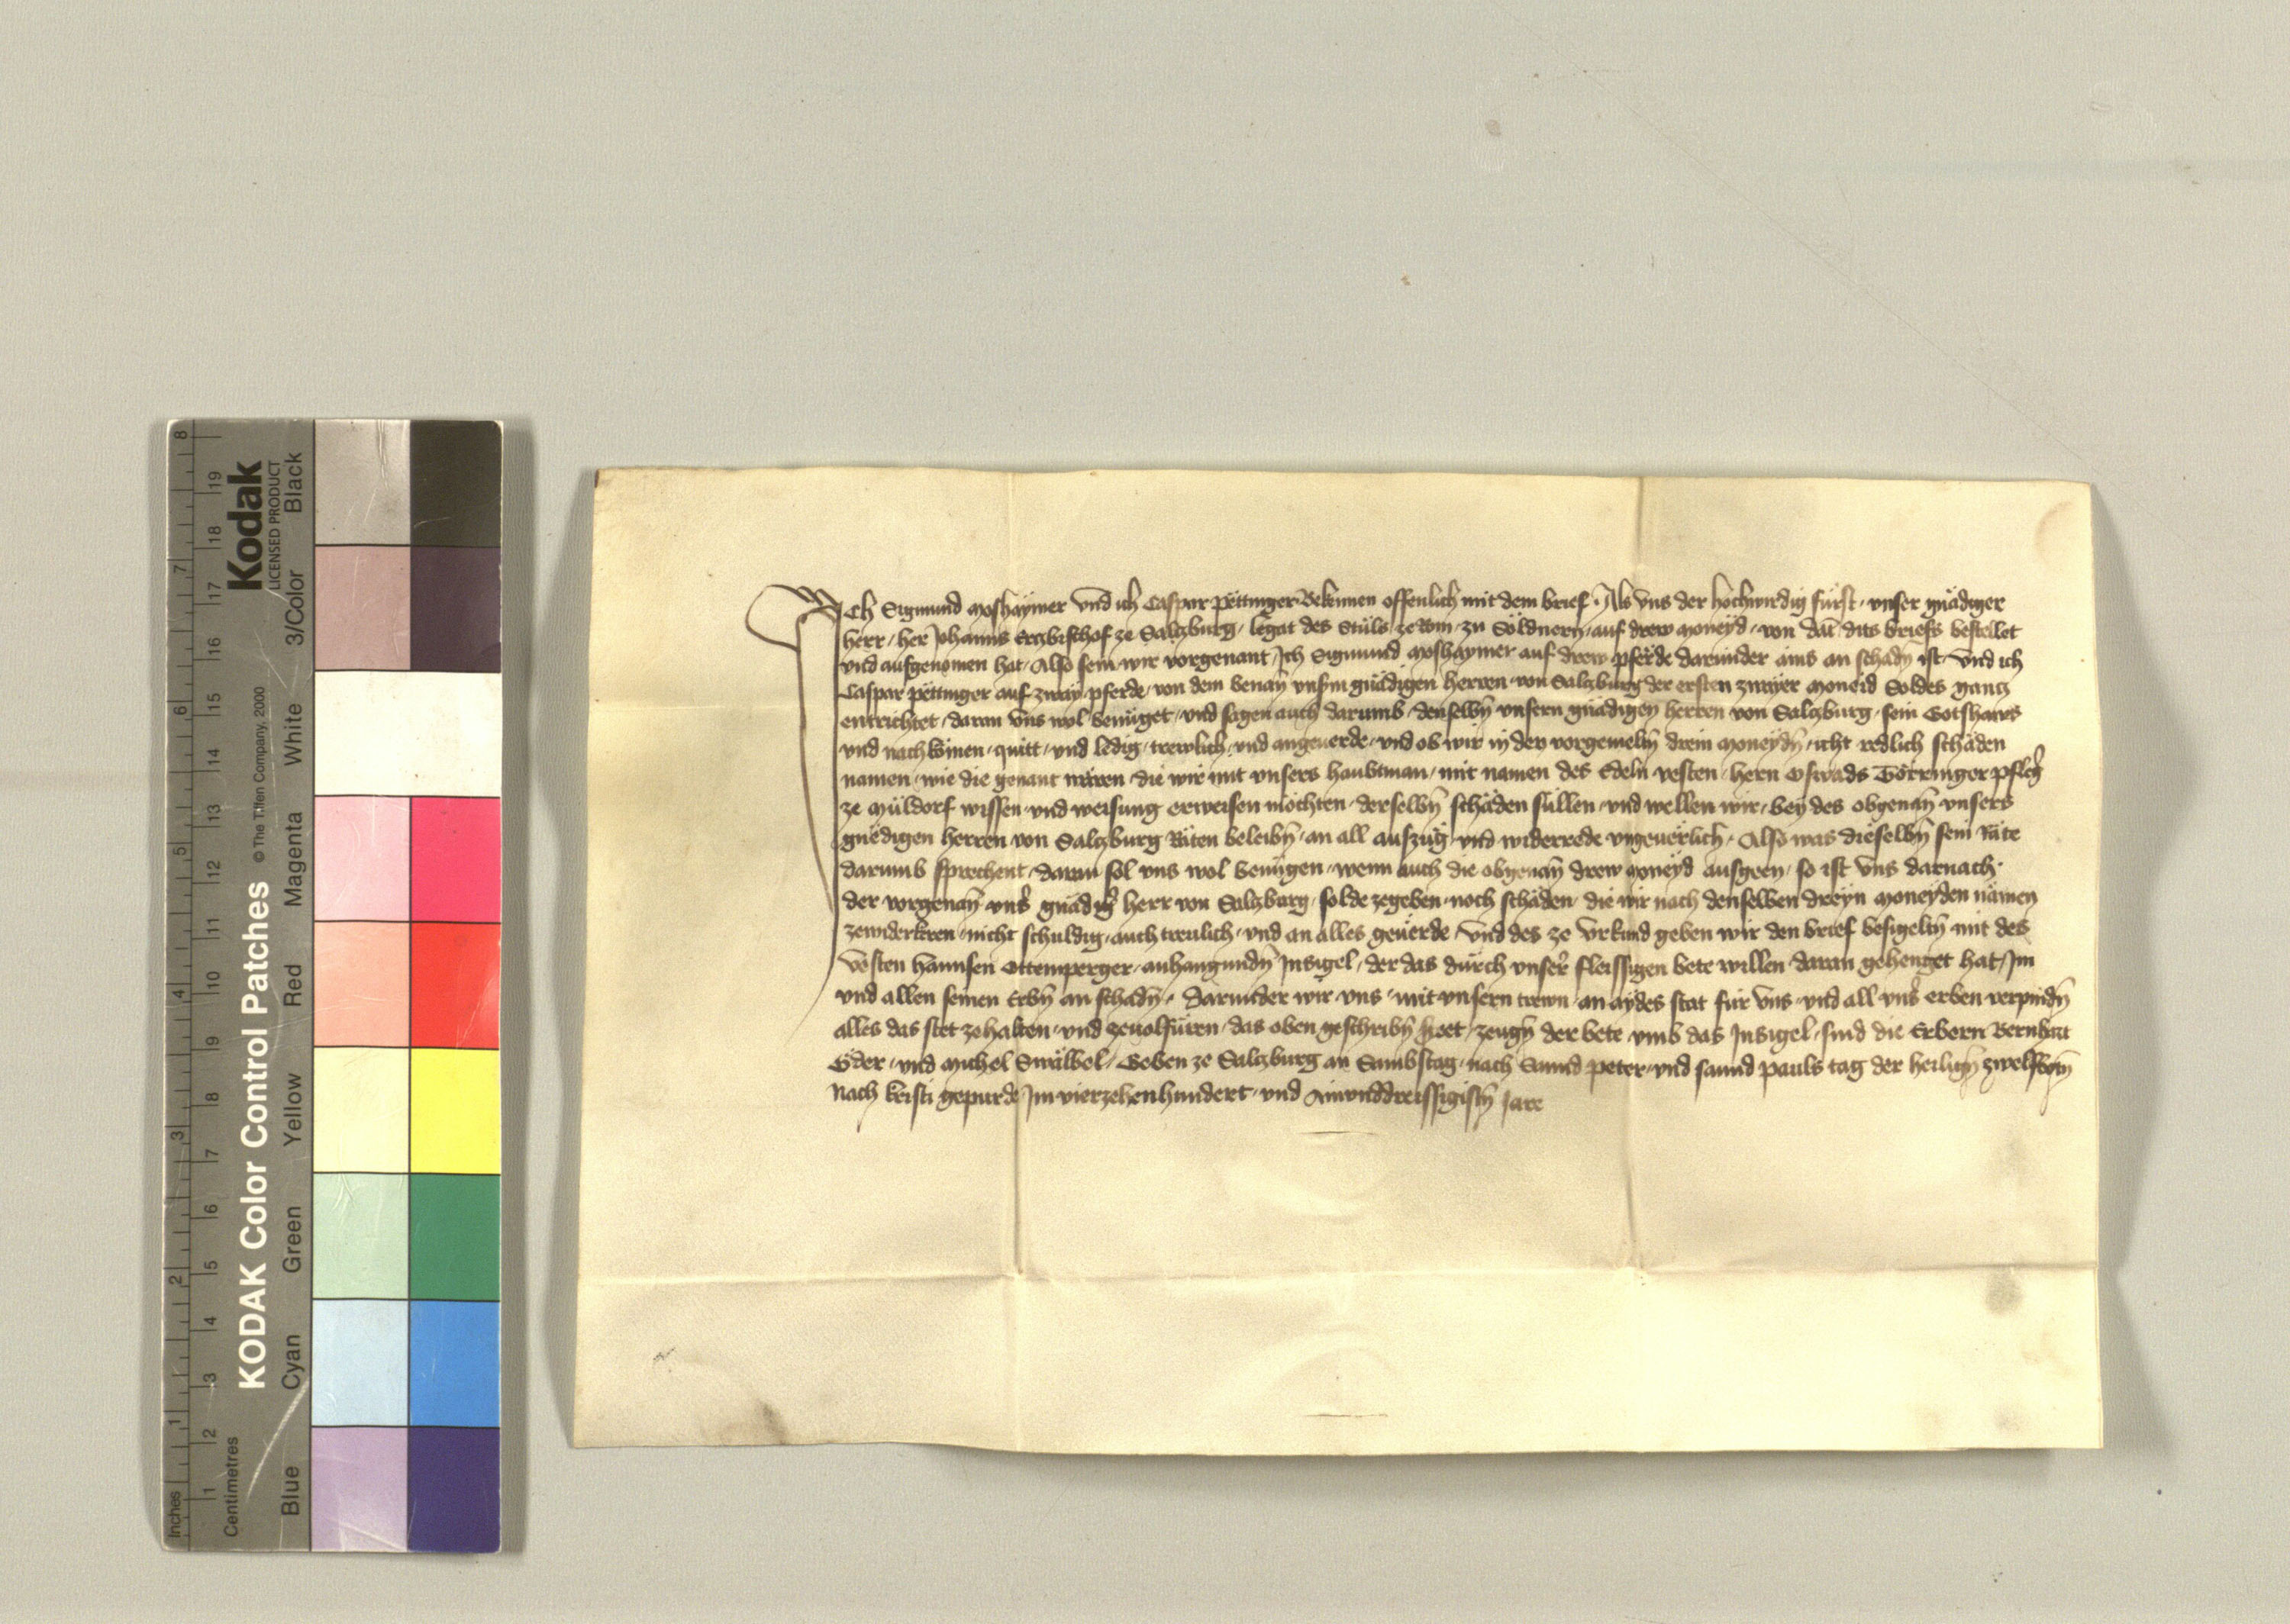 Ich Sigmund Moshaymer vnd ich Caspar Pöttinger Bekennen offenlich mit dem brief Als vns der hochwirdig fürst vnser gnädiger
herr her Johanns Erczbischof ze Salczburg legat des Stüls ze Rom zu Söldnern auf drew moneyd von dat dits briefs bestellet
vnd aufgenomen hat Also sein wir vorgenant Ich Sigmund Moshaymer auf drew pferde darunder ains an schadn ist vnd ich
Caspar Pöttinger auf zway pferde von dem benan vnserm gnädigen herren von Salczburg der ersten zwayer moneid Soldes gancz
entrichtet daran vns wol benüget vnd sagen auch darumb denselbn vnsern gnädigen herren von Salczburg sein Gotshaws
vnd nachkömen quitt vnd ledig trewlich vnd angeuerde vnd ob wir in den vorgemeltn drein moneydn icht redlich schäden
namen wie die genant wären die wir mit vnsers haubtman mit namen des Edeln vesten hern Oswalds Törringer pfleger
ze Müldorf wissen vnd weisung erweisen möchten derselbn schäden süllen vnd wellen wir bey des obgenan vnsers
gnëdigen herren von Salczburg Räten beleibn an all auszüg vnd widerrede vngeuerlich Also was dieselbn sein Räte
darumb sprechent daran sol vns wol benügen wenn auch die obgenan drew moneyd ausgeen so ist vns darnach
der vorgenan vnser gnädiger herr von Salczburg solde zegeben noch schäden die wir nach denselben dreyn moneyden nämen
zewiderkeren nicht schuldig auch trewlich vnd an alles geuerde vnd des ze vrkund geben wir den brief besigeltn mit des
vesten hannsen Ottemperger anhangundn Insigel der das durch vnser fleissigen bete willen daran gehenget hat Im
vnd allen seinen Erbn an schadn darunder wir vns mit vnsern trewn an aydes stat für vns vnd all vnser erben verpindn
alles das stet zehalten vnd zeuolfüren das oben geschribn steet zeugn der bete vmb das Insigel sind die Erbern Bernhart
Eder vnd Michel Swälbel Geben ze Salczburg an Sambstag nach Sannd Peter vnd sannd Pauls tag der heilign zwelfbotn
Nach kristi gepurde Im vierzehenhundert vnd Ainvnddreissigistn Jare
KODAK Color Control Patches
© The Tiffen Company, 2000
Kodak
LICENSED PRODUCT
Inches
1 2 3 4 5 6 7 8
Centimetres
1 2 3 4 5 6 7 8 9 10 11 12 13 14 15 16 17 18 19
Blue
Cyan
Green
Yellow
Red
Magenta
White
3/Color
Black